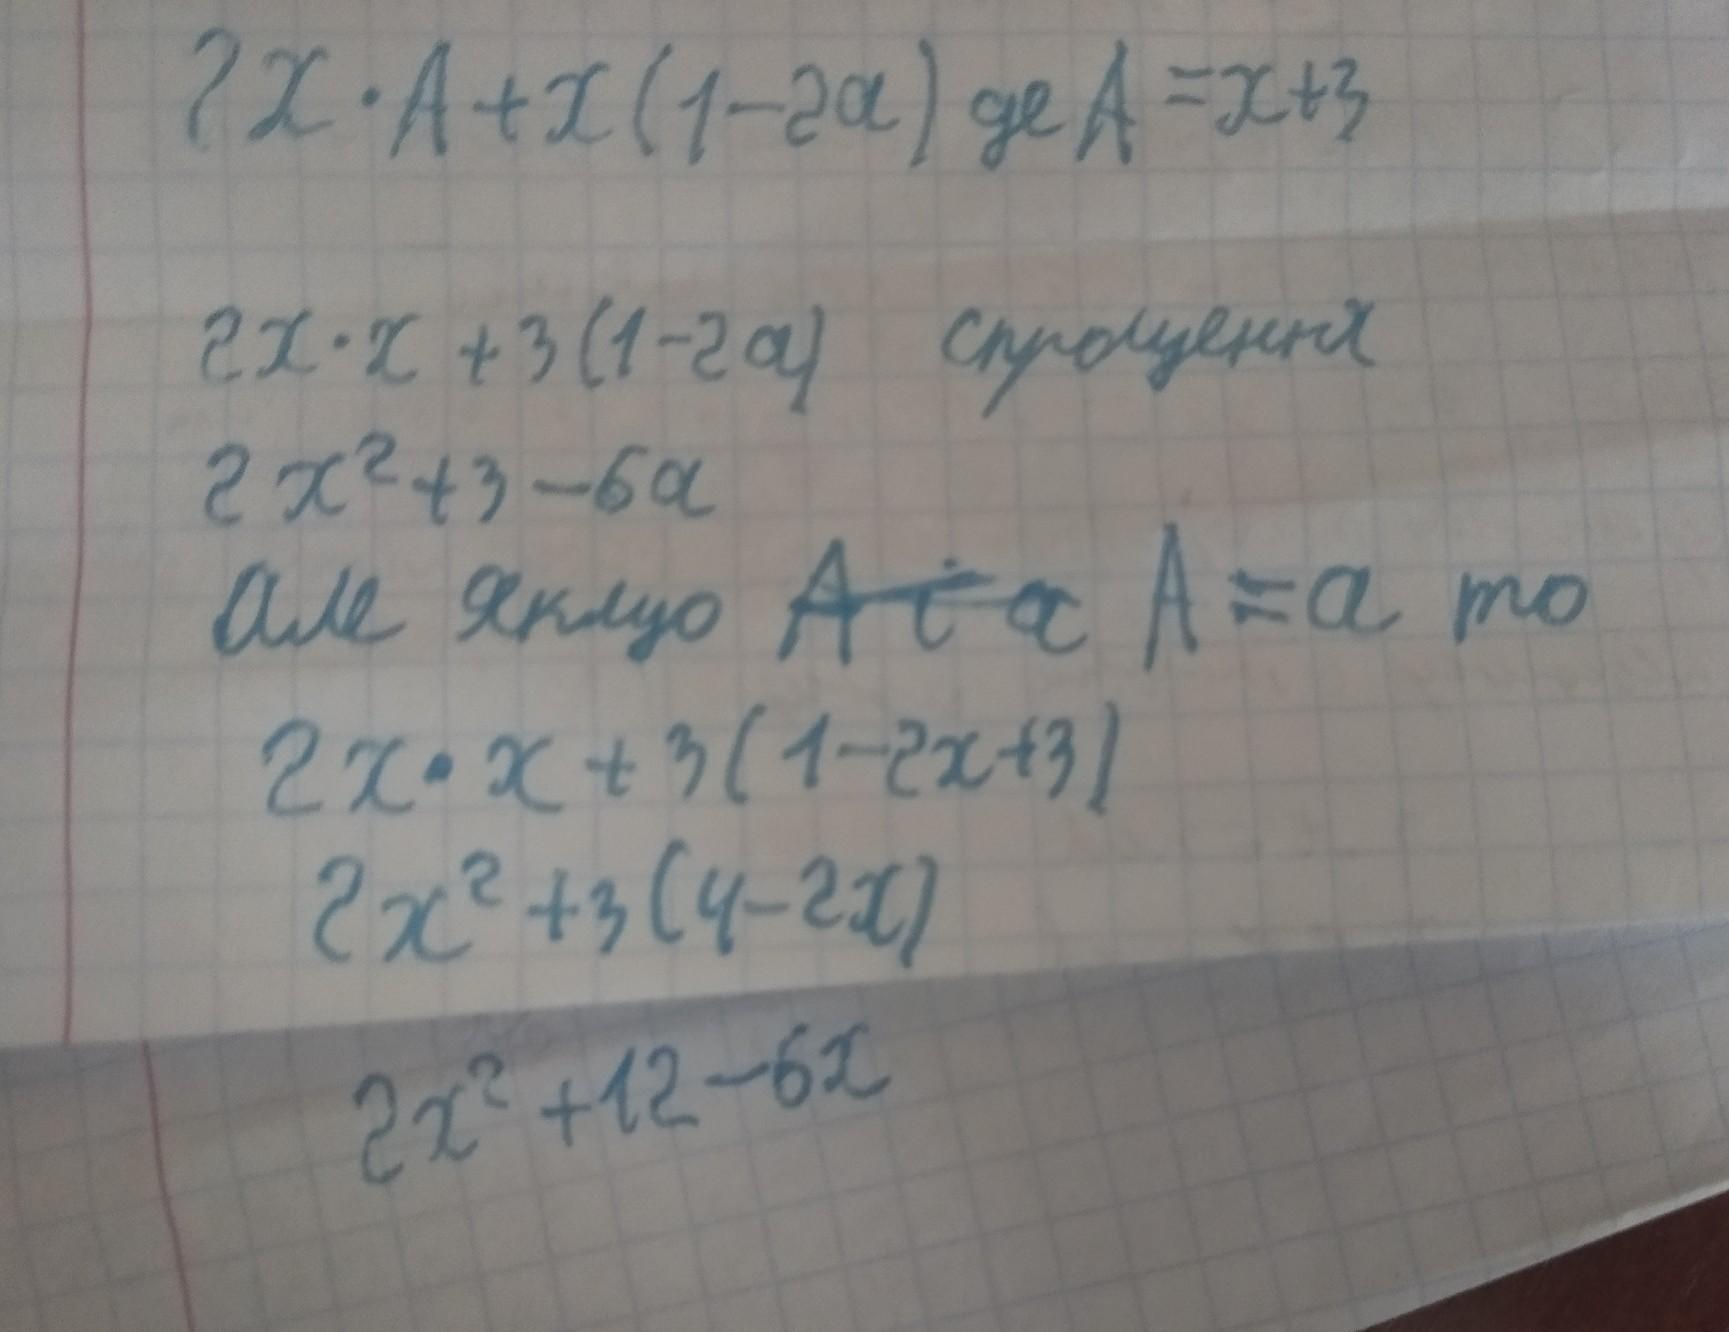 2x · A + x(1-2a) де A = x+3
2x · x + 3(1-2a) спрощення
2x² + 3 - 6a
але якщо A і a A = a то
2x · x + 3(1-2x+3)
2x² + 3(4-2x)
2x² + 12 - 6x